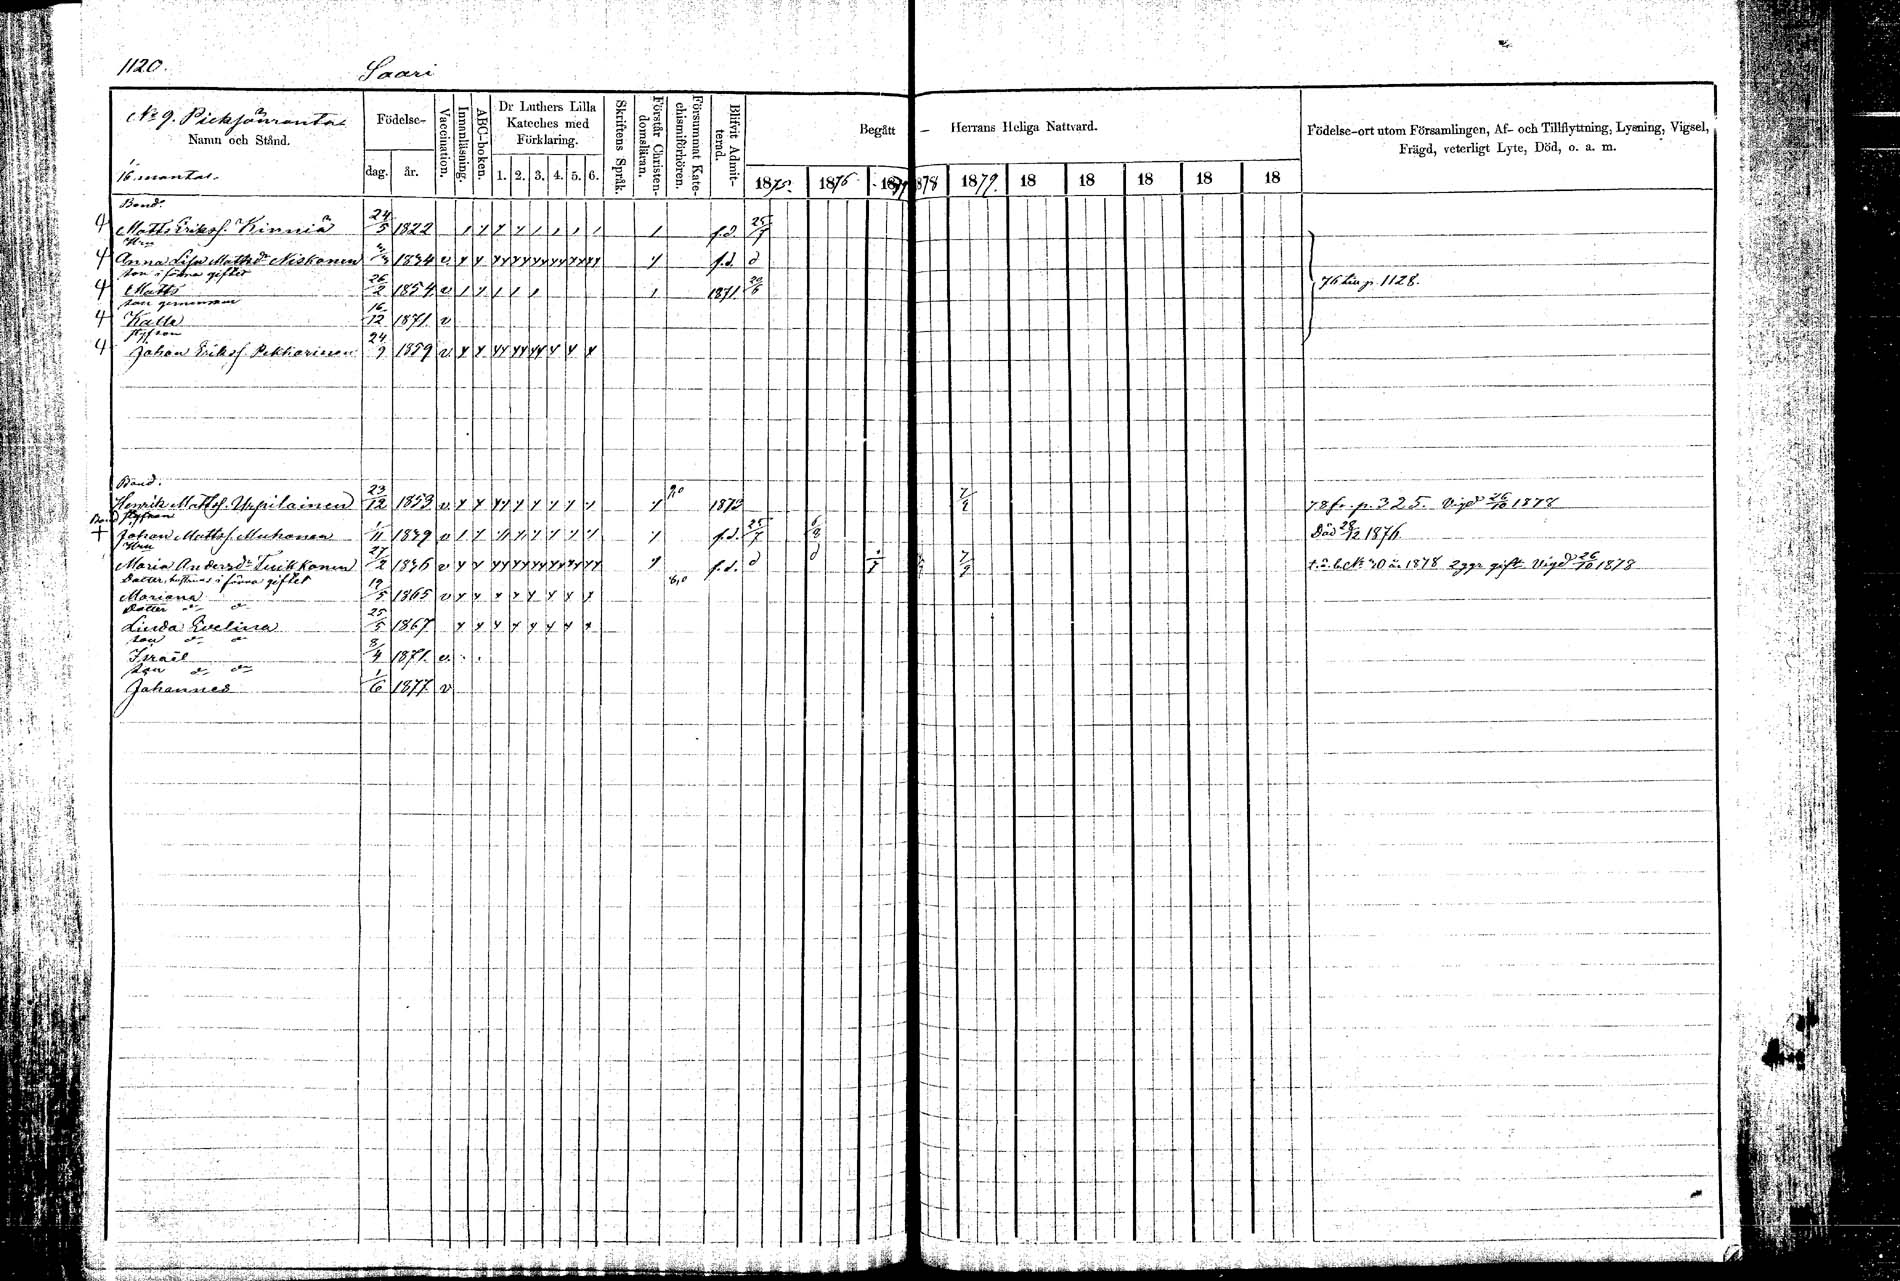 1120.
Saari
No 9. Pickjänranta
Namn och Stånd.
1/16 mantal.
Födelse-
dag. år.
Vaccination.
Innanläsning.
ABC-boken.
Dr Luthers Lilla Kateches med Förklaring.
1. 2. 3. 4. 5. 6.
Skriftens Språk.
Förstår Christendomsläran.
Försummat Katechismiförhören.
Blifvit Admitterad.
Begått Herrans Heliga Nattvard.
1875. 1876 1877 1878 1879. 18 18 18 18 18
Födelse-ort utom Församlingen, Af- och Tillflyttning, Lysning, Vigsel,
Frägd, veterligt Lyte, Död, o. a. m.
Bond.
Matts Eriksf. Kinniä 24/5 1822 f.d. 25/7
Hru
Anna Lisa Mattsdr Niskanen 1834 v f.d. d
son i förra giftet
Matts 26/2 1854 v 1871 76 till p. 1128.
son gemensam
Kalle 16/12 1871 v
styfson
Johan Eriksf. Pekkarinen 24/9 1859 v
Bond.
Henrik Mattsf. Uppilainen 23/12 1853 v 1873 78 fr. p. 325. Vigd 26/10 1878
Bond styfson
Johan Mattsf. Muhonen 1/11 1839 v f.d. 25/7 Död 28/12 1876
Hru
Maria Andersdr Tirkkonen 27/2 1836 v f.d. d d 7/9 t.ä.b. No 70 år 1878 2ggr gift Vigd 26/10 1878
Dotter, hustrus i förra giftet
Mariana 19/5 1865 v
Dotter d:o d:o
Linda Evelina 25/5 1867
son d:o d:o
Israël 8/4 1871 v.
son d:o d:o
Johannes 1/6 1877 v